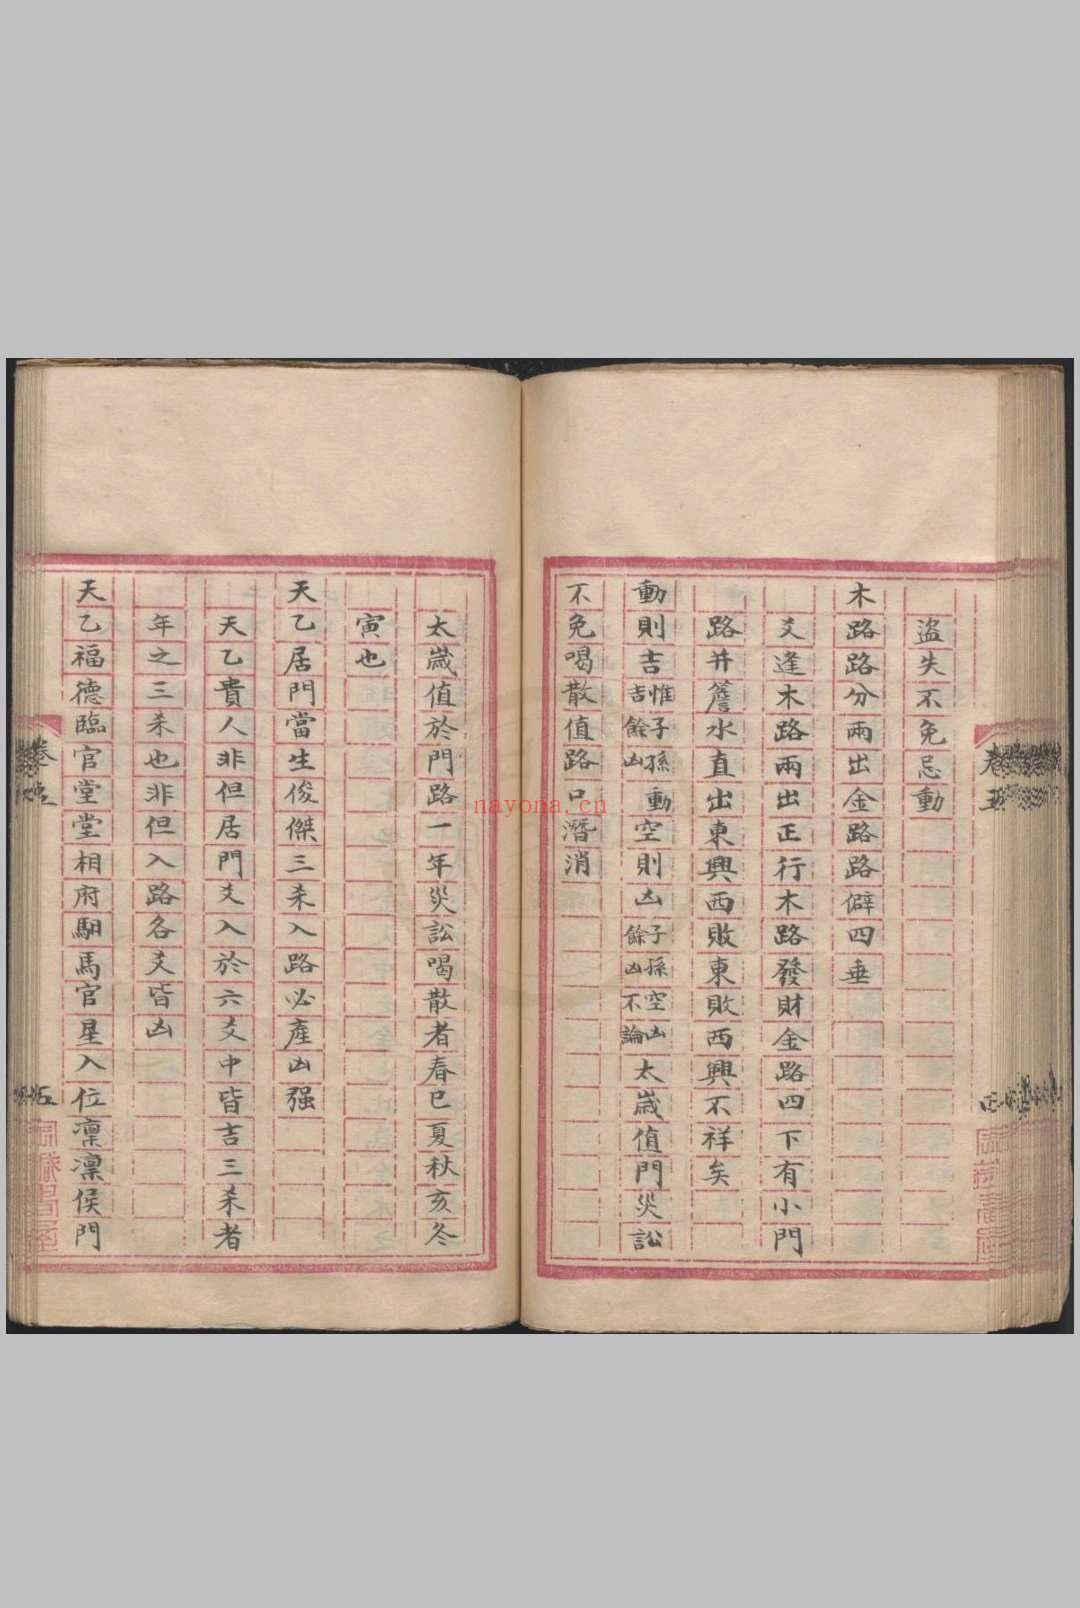 盜失不免忌動
木路路分兩出金路路僻四垂
爻逢木路兩出正行木路發財金路四下有小門
路并簷水直出東興西敗東敗西興不祥矣
動則吉惟子孫動吉餘凶空則凶子孫空凶餘凶不論太歲值門災訟
不免喝散值路口潛消
太歲值於門路一年災訟喝散者春巳夏秋亥冬
寅也
天乙居門當生俊傑三杀入路必產凶强
天乙貴人非但居門爻入於六爻中皆吉三杀者
年之三杀也非但入路各爻皆凶
天乙福德臨官堂堂相府駙馬官星入位凛凛侯門
卷五
nayona.cn